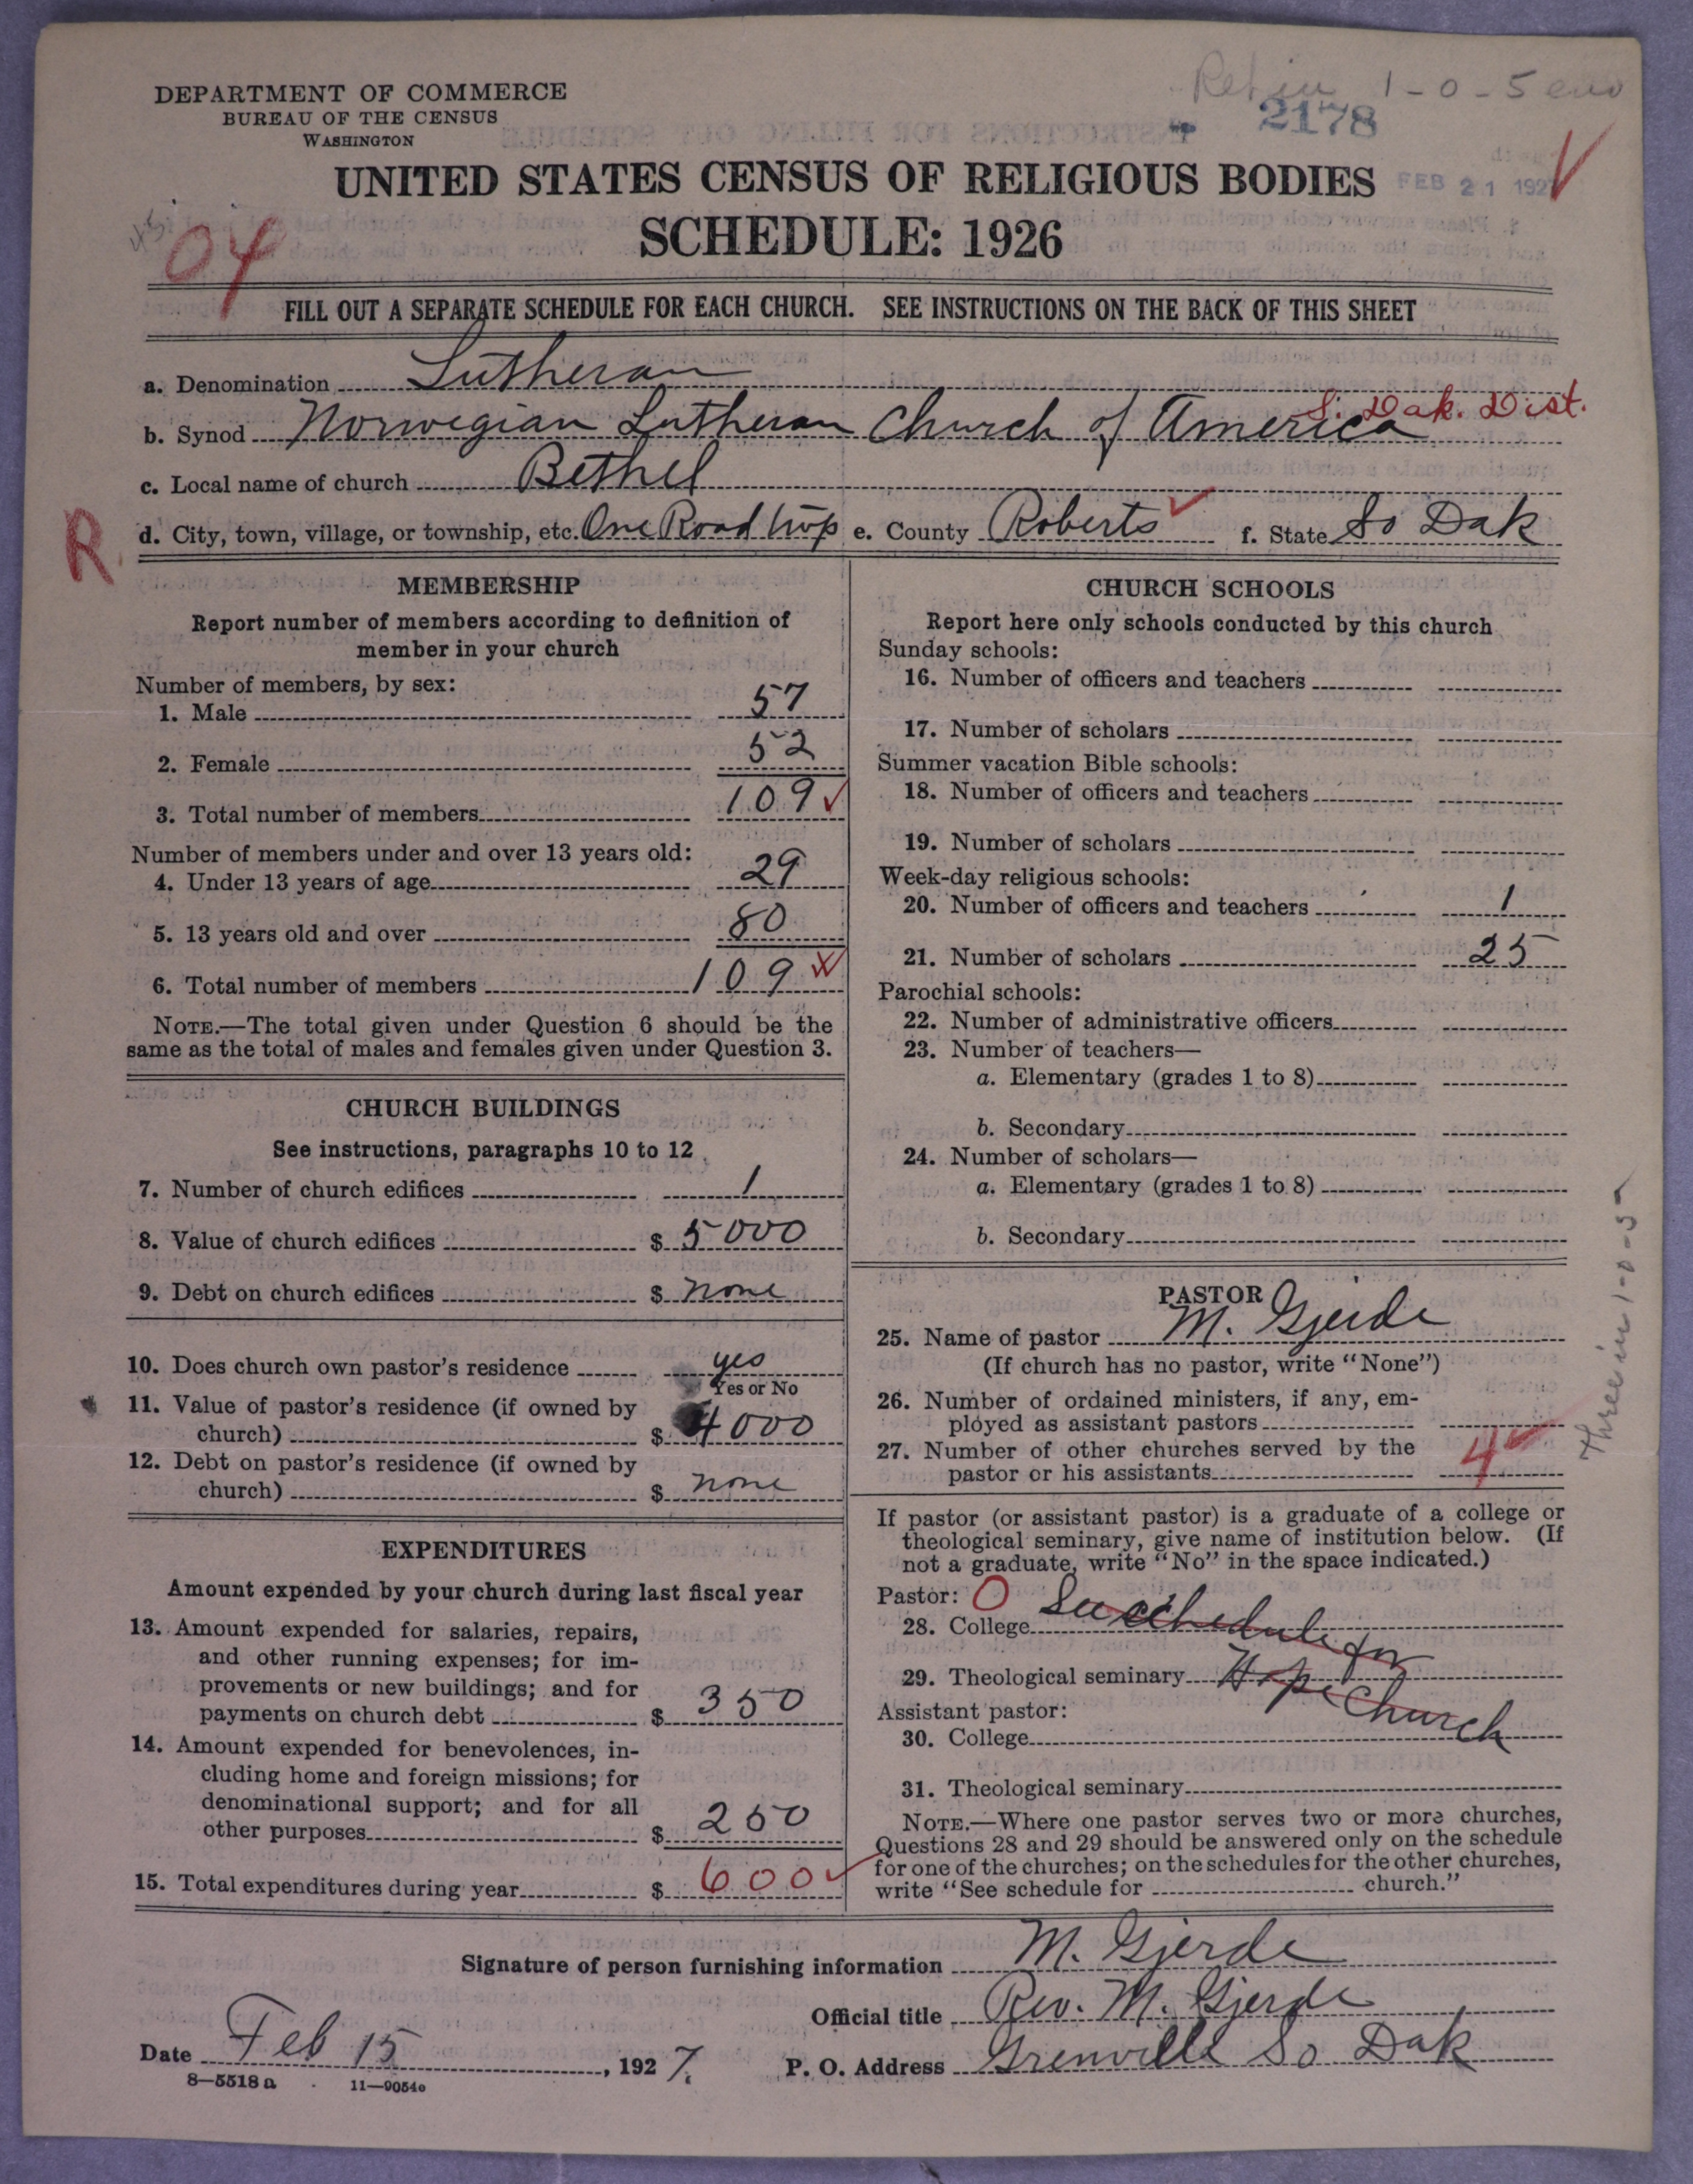 Ret in 1-0-5 enu
2178
DEPARTMENT OF COMMERCE
BUREAU OF THE CENSUS
WASHINGTON
UNITED STATES CENSUS OF RELIGIOUS BODIES
FEB 21 1927
SCHEDULE: 1926
04
FILL OUT A SEPARATE SCHEDULE FOR EACH CHURCH. SEE INSTRUCTIONS ON THE BACK OF THIS SHEET
a. Denomination Lutheran
S. Dak. Dist.
b. Synod Norwegian Lutheran Church of America
c. Local name of church Bethel
R
d. City, town, village, or township, etc. One Road twp e. County Roberts f. State So Dak
MEMBERSHIP
Report number of members according to definition of
member in your church
Number of members, by sex:
1. Male 57
2. Female 52
3. Total number of members 109
Number of members under and over 13 years old:
4. Under 13 years of age 29
5. 13 years old and over 80
6. Total number of members 109
NOTE.—The total given under Question 6 should be the
same as the total of males and females given under Question 3.
CHURCH BUILDINGS
See instructions, paragraphs 10 to 12
7. Number of church edifices 1
8. Value of church edifices $ 5000
9. Debt on church edifices $ none
10. Does church own pastor's residence yes
Yes or No
11. Value of pastor's residence (if owned by
church) $ 4000
12. Debt on pastor's residence (if owned by
church) $ none
EXPENDITURES
Amount expended by your church during last fiscal year
13. Amount expended for salaries, repairs,
and other running expenses; for im-
provements or new buildings; and for
payments on church debt $ 350
14. Amount expended for benevolences, in-
cluding home and foreign missions; for
denominational support; and for all
other purposes $ 250
15. Total expenditures during year $ 600
CHURCH SCHOOLS
Report here only schools conducted by this church
Sunday schools:
16. Number of officers and teachers
17. Number of scholars
Summer vacation Bible schools:
18. Number of officers and teachers
19. Number of scholars
Week-day religious schools:
20. Number of officers and teachers 1
21. Number of scholars 25
Parochial schools:
22. Number of administrative officers
23. Number of teachers—
a. Elementary (grades 1 to 8)
b. Secondary
24. Number of scholars—
a. Elementary (grades 1 to 8)
b. Secondary
PASTOR
25. Name of pastor M. Gjerde
(If church has no pastor, write "None")
26. Number of ordained ministers, if any, em-
ployed as assistant pastors
27. Number of other churches served by the
pastor or his assistants 4
Three in 1-0-5
If pastor (or assistant pastor) is a graduate of a college or
theological seminary, give name of institution below. (If
not a graduate, write "No" in the space indicated.)
Pastor: O
28. College See schedule for
29. Theological seminary Hope Church
Assistant pastor:
30. College
31. Theological seminary
NOTE.—Where one pastor serves two or more churches,
Questions 28 and 29 should be answered only on the schedule
for one of the churches; on the schedules for the other churches,
write "See schedule for church."
Signature of person furnishing information M. Gjerde
Official title Rev. M. Gjerde
Date Feb 15, 1927. P. O. Address Grenville So Dak
8—5518 a 11—9054o